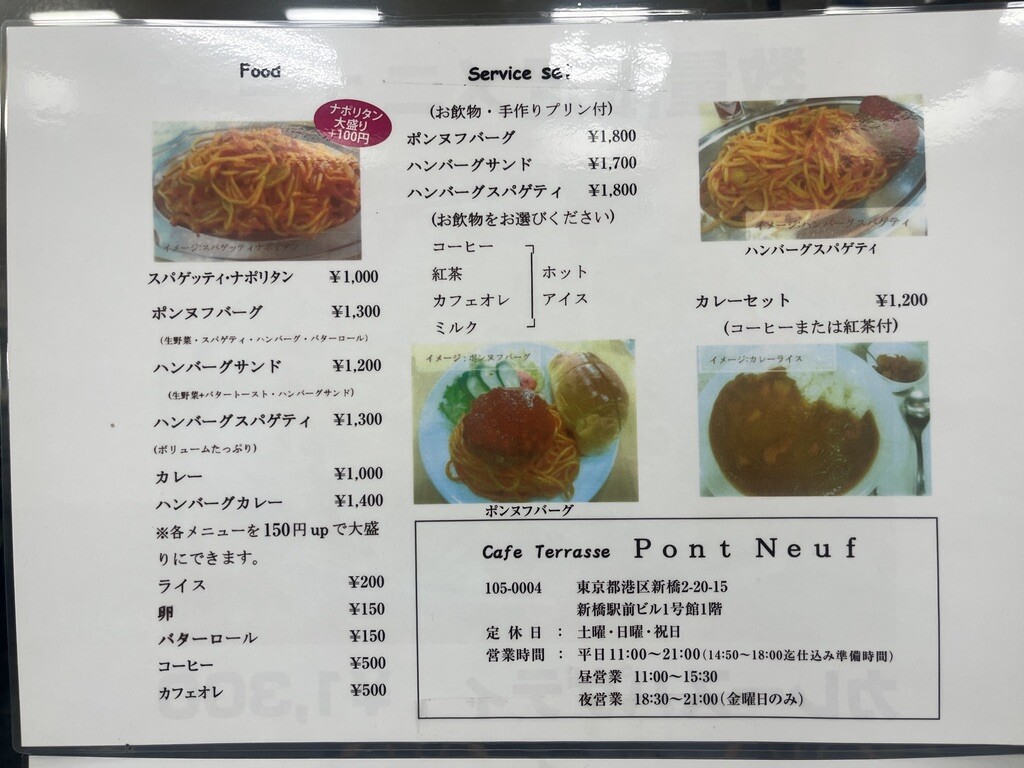 Food
ナポリタン
大盛り
+100円
イメージ:スパゲッティナポリタン
スパゲッティ・ナポリタン ¥1,000
ポンヌフバーグ ¥1,300
(生野菜・スパゲティ・ハンバーグ・バターロール)
ハンバーグサンド ¥1,200
(生野菜+バタートースト・ハンバーグサンド)
ハンバーグスパゲティ ¥1,300
(ボリュームたっぷり)
カレー ¥1,000
ハンバーグカレー ¥1,400
※各メニューを150円upで大盛
りにできます。
ライス ¥200
卵 ¥150
バターロール ¥150
コーヒー ¥500
カフェオレ ¥500
Service set
(お飲物・手作りプリン付)
ポンヌフバーグ ¥1,800
ハンバーグサンド ¥1,700
ハンバーグスパゲティ ¥1,800
(お飲物をお選びください)
コーヒー
紅茶 ホット
カフェオレ アイス
ミルク
イメージ:ポンヌフバーグ
ポンヌフバーグ
イメージ:ハンバーグスパゲティ
ハンバーグスパゲティ
カレーセット ¥1,200
(コーヒーまたは紅茶付)
イメージ:カレーライス
Cafe Terrasse Pont Neuf
105-0004 東京都港区新橋2-20-15
新橋駅前ビル1号館1階
定休日 : 土曜・日曜・祝日
営業時間 : 平日11:00～21:00(14:50～18:00迄仕込み準備時間)
昼営業 11:00～15:30
夜営業 18:30～21:00(金曜日のみ)